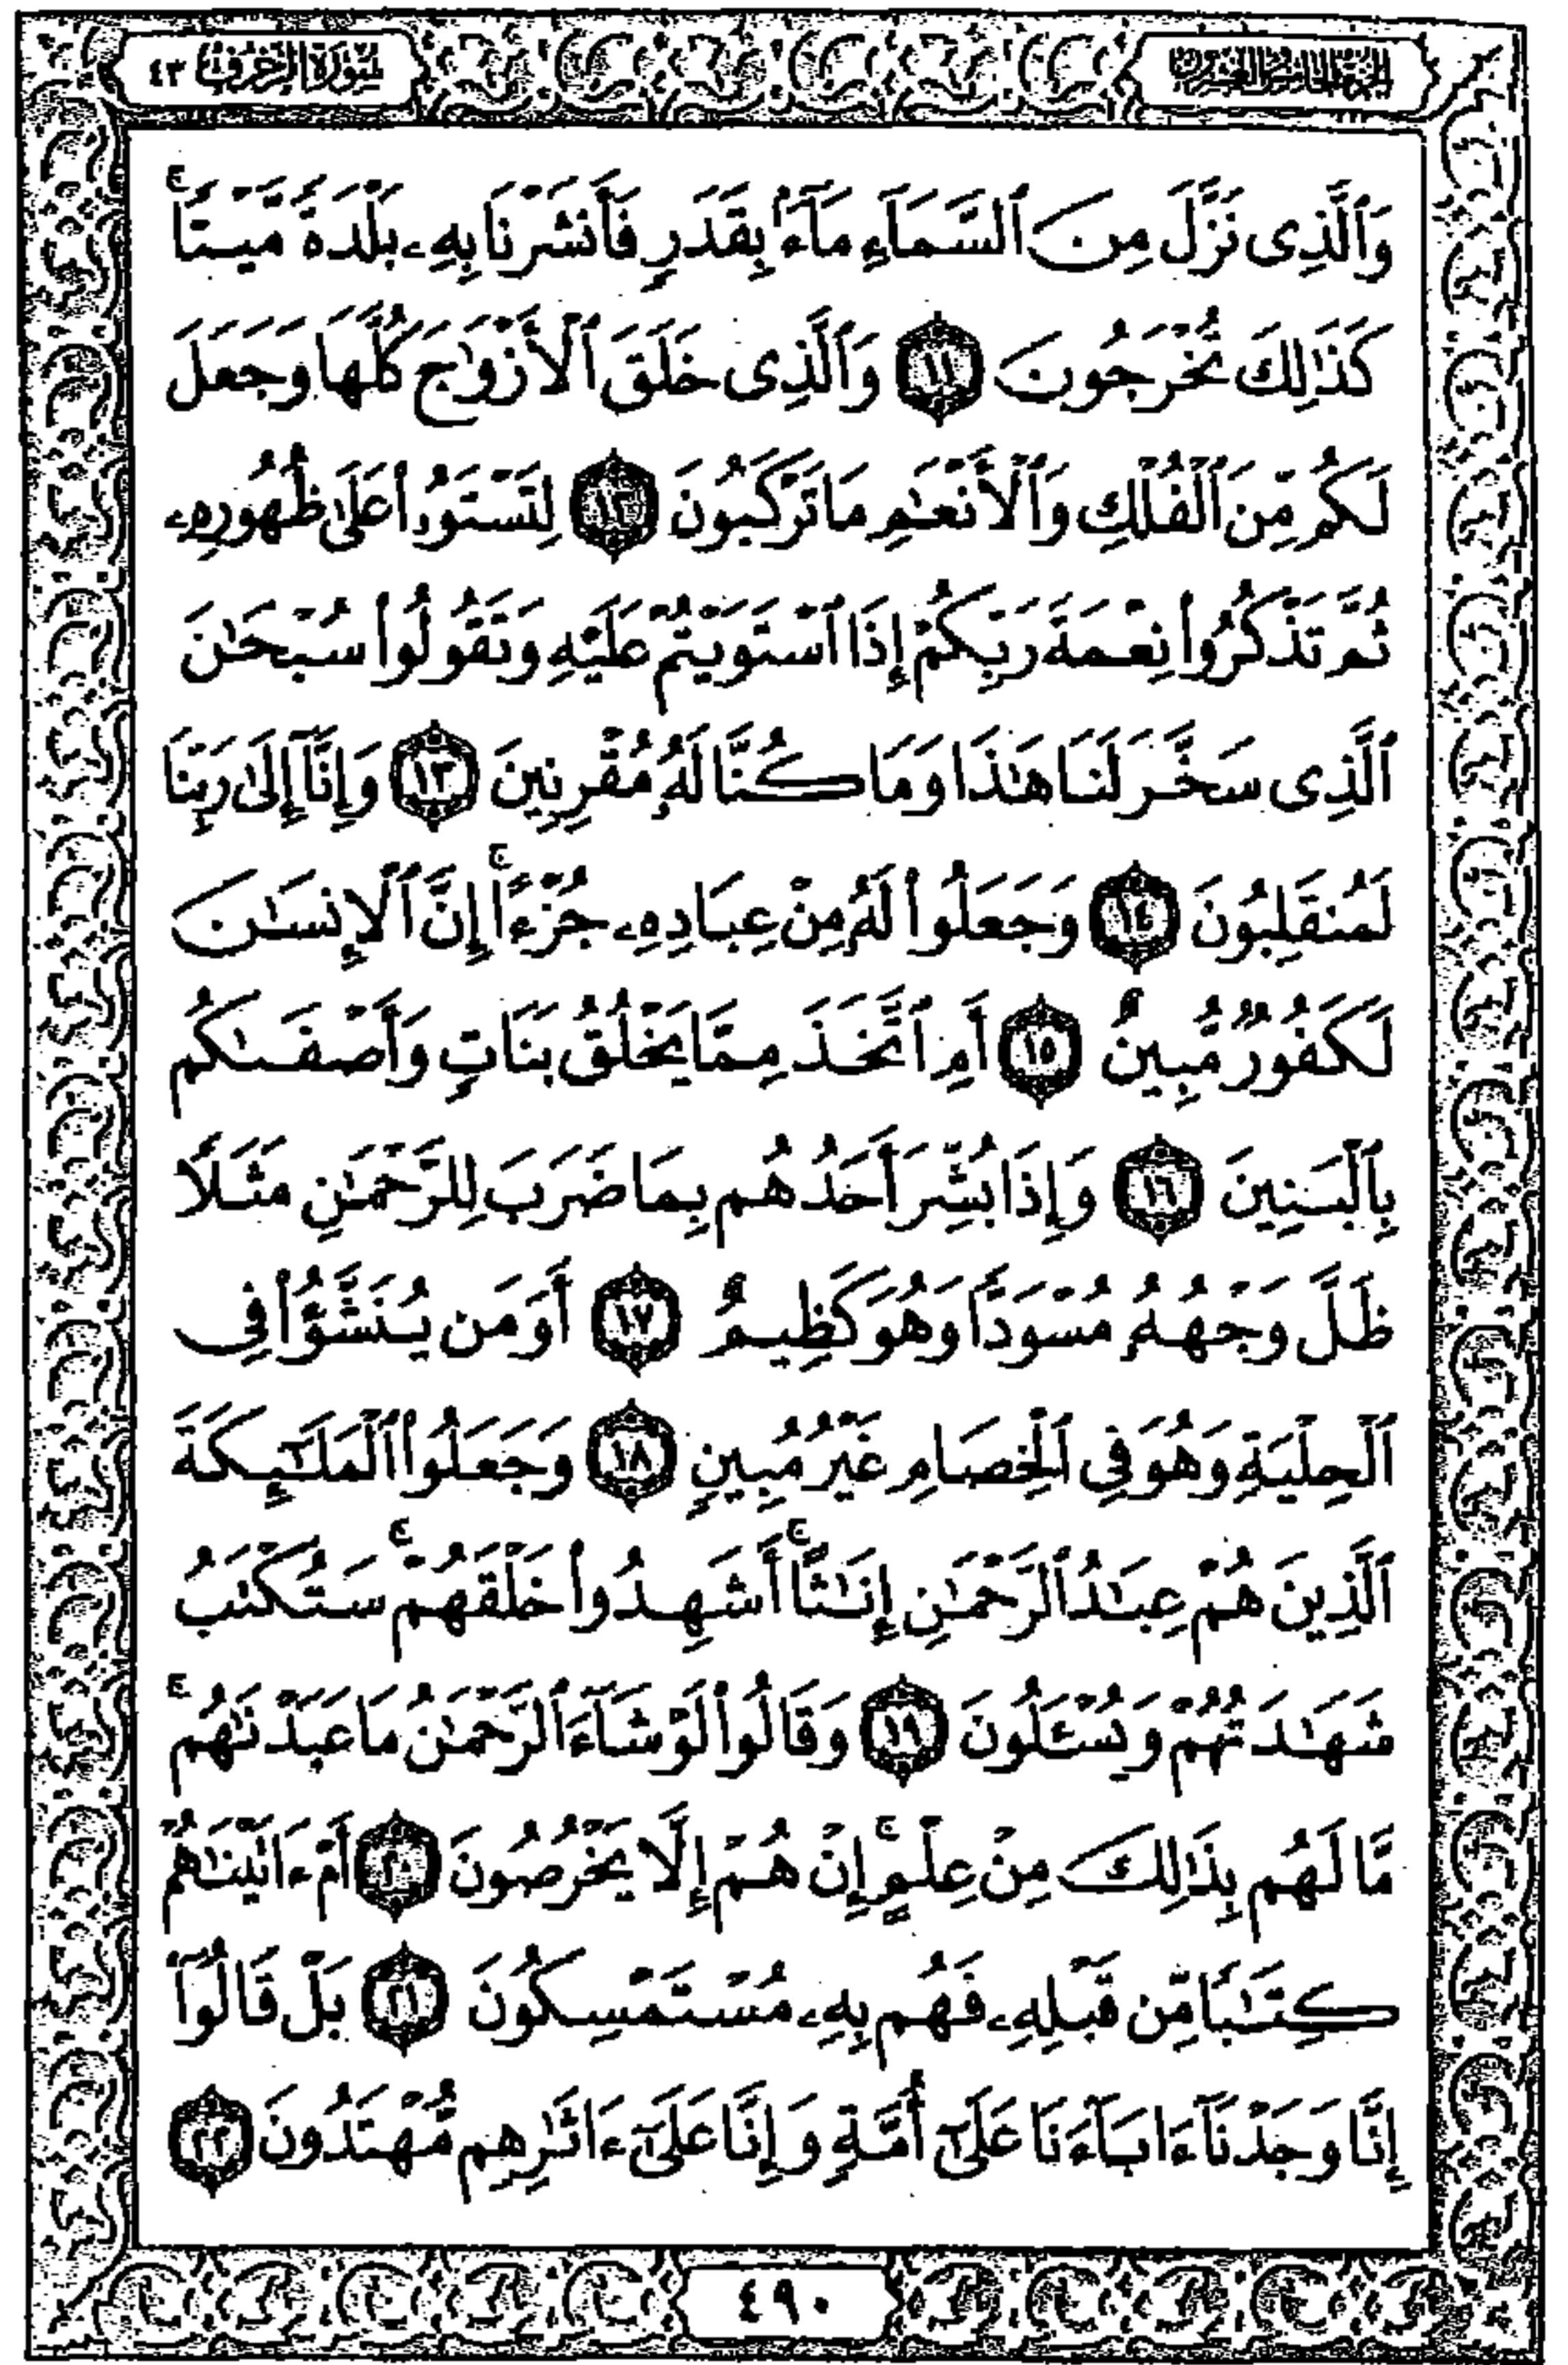 الجزء الخامس والعشرون سورة الزخرف ٤٣
وَٱلَّذِى نَزَّلَ مِنَ ٱلسَّمَآءِ مَآءًۢ بِقَدَرٍ فَأَنشَرْنَا بِهِۦ بَلْدَةً مَّيْتًا ۚ
كَذَٰلِكَ تُخْرَجُونَ ١١ وَٱلَّذِى خَلَقَ ٱلْأَزْوَٰجَ كُلَّهَا وَجَعَلَ
لَكُم مِّنَ ٱلْفُلْكِ وَٱلْأَنْعَٰمِ مَا تَرْكَبُونَ ١٢ لِتَسْتَوُۥا۟ عَلَىٰ ظُهُورِهِۦ
ثُمَّ تَذْكُرُوا۟ نِعْمَةَ رَبِّكُمْ إِذَا ٱسْتَوَيْتُمْ عَلَيْهِ وَتَقُولُوا۟ سُبْحَٰنَ
ٱلَّذِى سَخَّرَ لَنَا هَٰذَا وَمَا كُنَّا لَهُۥ مُقْرِنِينَ ١٣ وَإِنَّآ إِلَىٰ رَبِّنَا
لَمُنقَلِبُونَ ١٤ وَجَعَلُوا۟ لَهُۥ مِنْ عِبَادِهِۦ جُزْءًا ۚ إِنَّ ٱلْإِنسَٰنَ
لَكَفُورٌ مُّبِينٌ ١٥ أَمِ ٱتَّخَذَ مِمَّا يَخْلُقُ بَنَاتٍ وَأَصْفَىٰكُم
بِٱلْبَنِينَ ١٦ وَإِذَا بُشِّرَ أَحَدُهُم بِمَا ضَرَبَ لِلرَّحْمَٰنِ مَثَلًا
ظَلَّ وَجْهُهُۥ مُسْوَدًّا وَهُوَ كَظِيمٌ ١٧ أَوَمَن يُنَشَّؤُا۟ فِى
ٱلْحِلْيَةِ وَهُوَ فِى ٱلْخِصَامِ غَيْرُ مُبِينٍ ١٨ وَجَعَلُوا۟ ٱلْمَلَٰٓئِكَةَ
ٱلَّذِينَ هُمْ عِبَٰدُ ٱلرَّحْمَٰنِ إِنَٰثًا ۚ أَشَهِدُوا۟ خَلْقَهُمْ ۚ سَتُكْتَبُ
شَهَٰدَتُهُمْ وَيُسْـَٔلُونَ ١٩ وَقَالُوا۟ لَوْ شَآءَ ٱلرَّحْمَٰنُ مَا عَبَدْنَٰهُم ۗ
مَّا لَهُم بِذَٰلِكَ مِنْ عِلْمٍ ۖ إِنْ هُمْ إِلَّا يَخْرُصُونَ ٢٠ أَمْ ءَاتَيْنَٰهُمْ
كِتَٰبًا مِّن قَبْلِهِۦ فَهُم بِهِۦ مُسْتَمْسِكُونَ ٢١ بَلْ قَالُوٓا۟
إِنَّا وَجَدْنَآ ءَابَآءَنَا عَلَىٰٓ أُمَّةٍ وَإِنَّا عَلَىٰٓ ءَاثَٰرِهِم مُّهْتَدُونَ ٢٢
٤٩٠